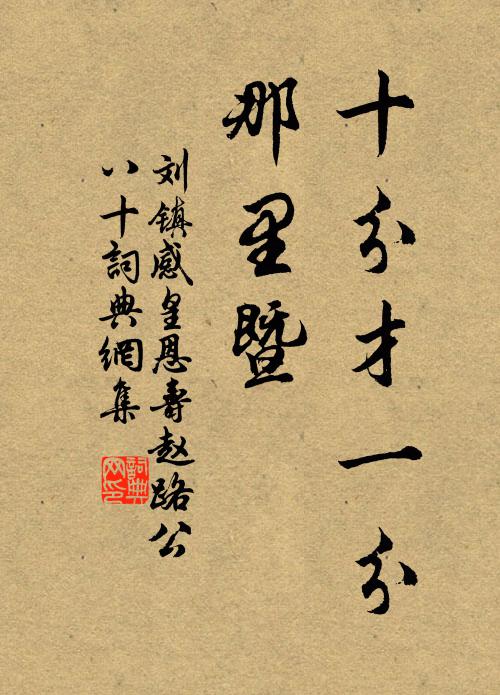 十分才一分
那里暨
刘镇感皇恩壽赵路公
八十詞典網集
詞典
网印